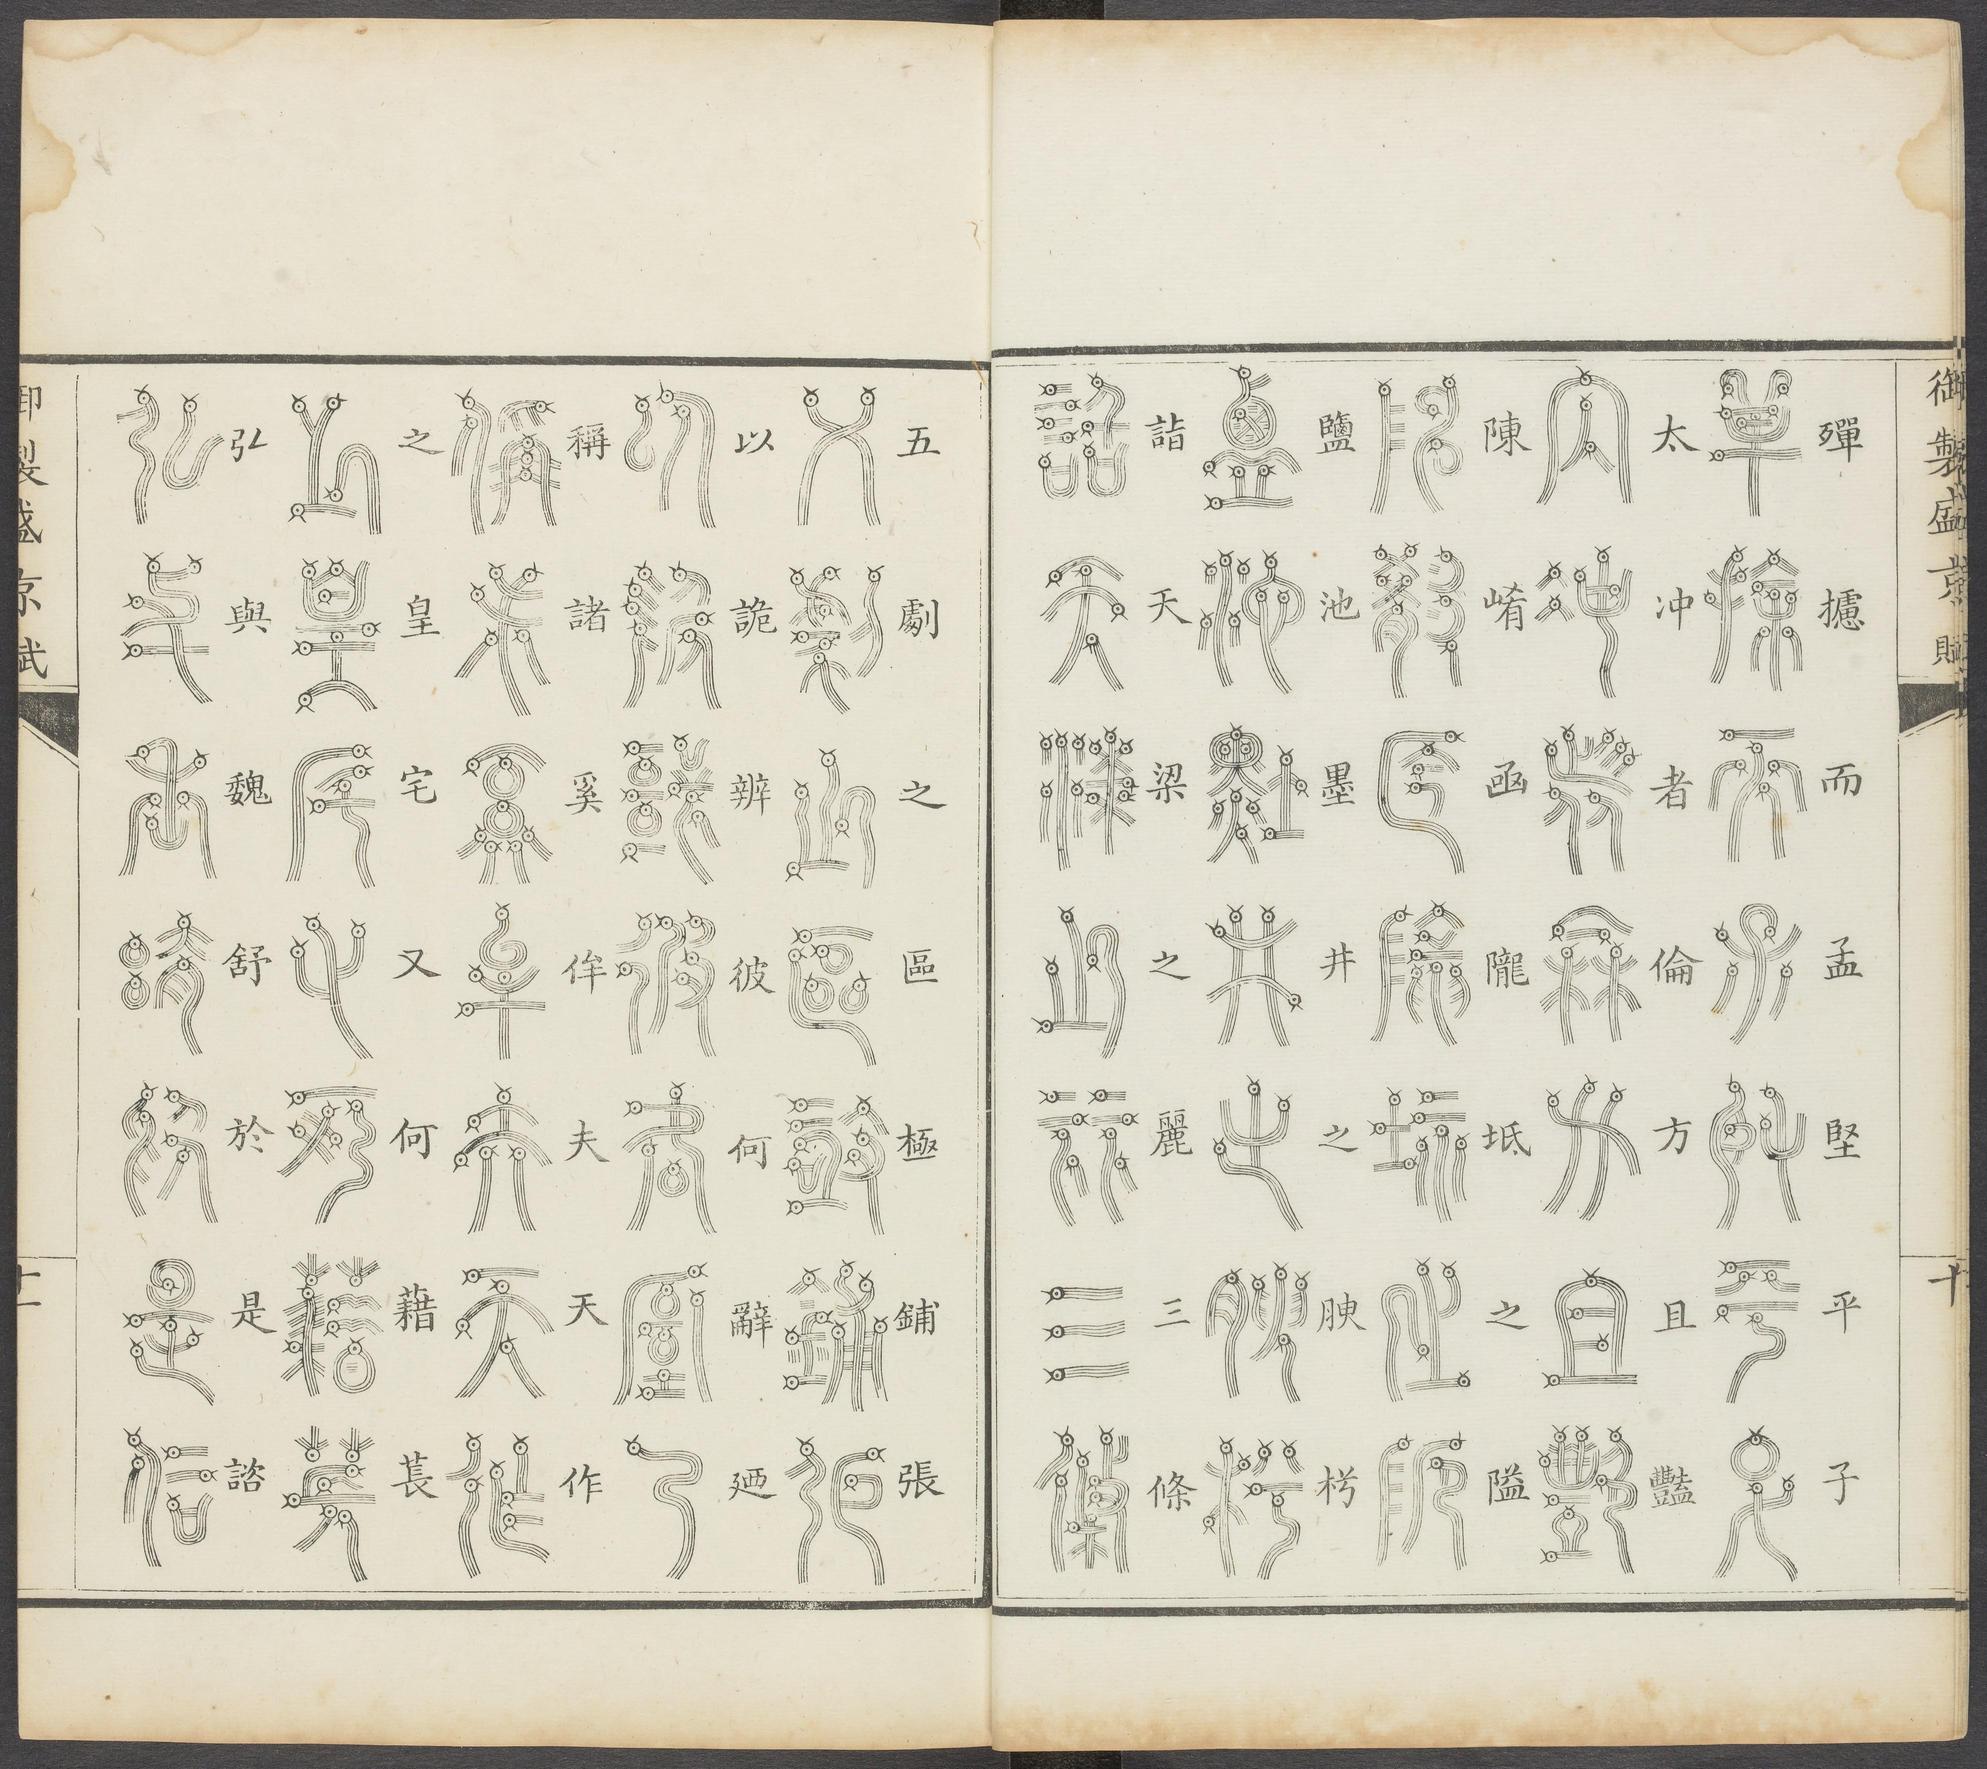 御製盛京賦
十
殫攄而孟堅平子
太冲者倫方且豔
陳崤函隴坻之隘
鹽池墨井之腴枵
詣天梁之麗三條
五劇之區極鋪張
以詭辨彼何辭廼
稱諸奚侔夫天作
之皇宅又何藉萇
弘與魏舒於是諮
御製盛京賦
十一